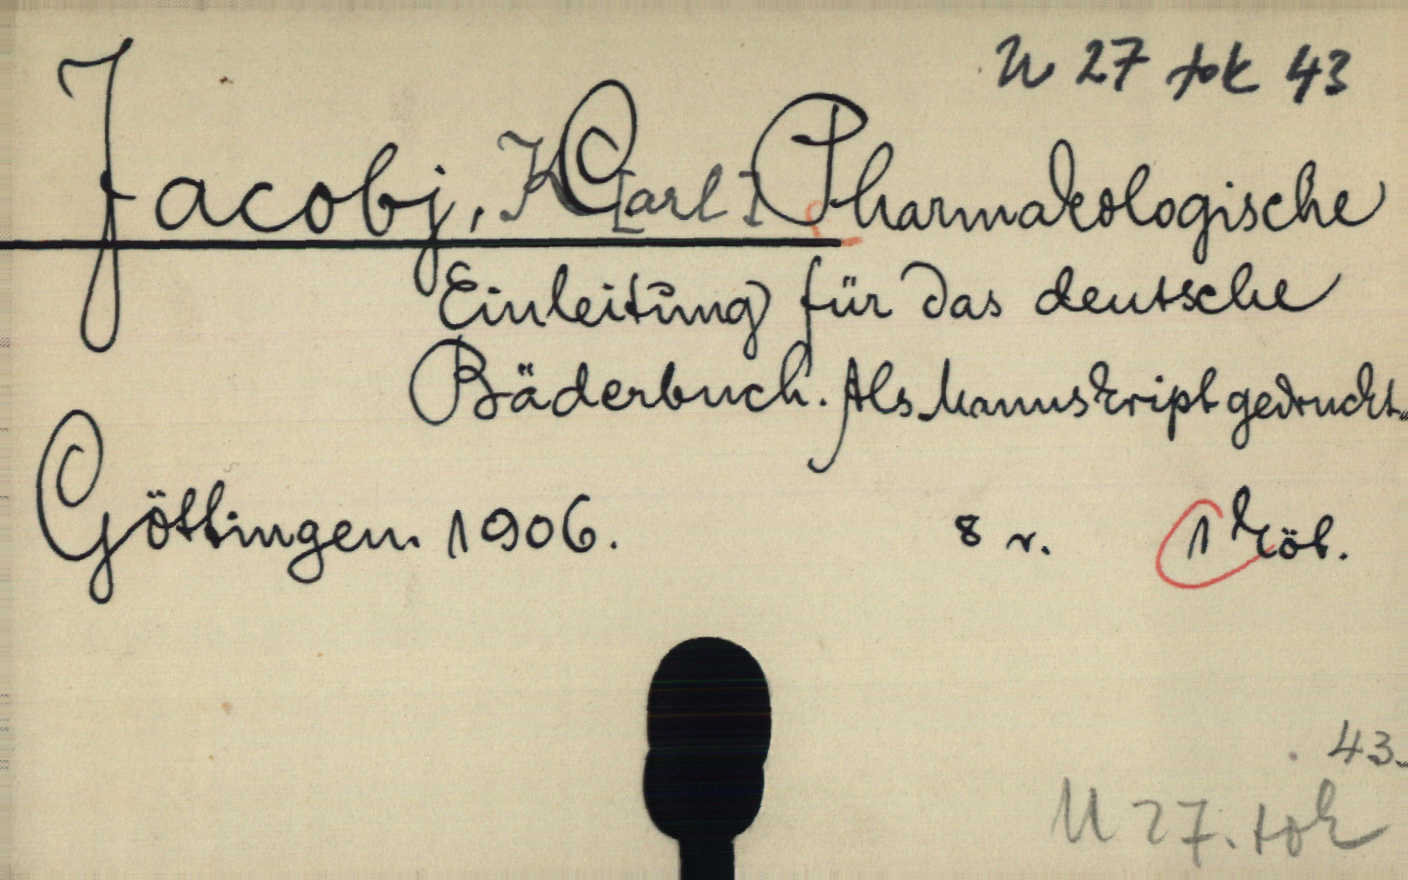 U 27 tok 43
Jacobj, C[arl] Pharmakologische
Einleitung für das deutsche
Bäderbuch. Als Manuskript gedruckt.
Göttingen 1906. 8 r. 1 köt.
43.
U 27. tok